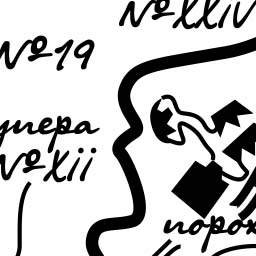 №XXIV
№19
упера
№Xii
порох